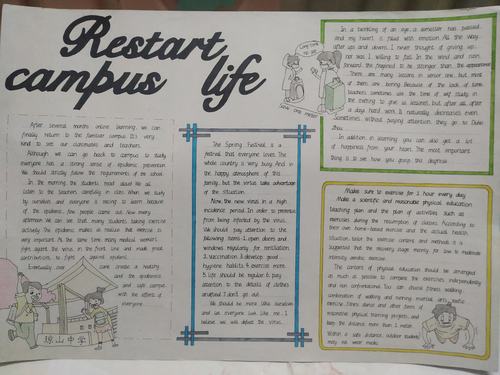 Restart
campus life
After several months online learning, we can
finally return to the familiar campus. It's very
kind to see our classmates and teachers.
Although we can go back to campus to study,
everyone has a strong sense of epidemic prevention.
We should strictly follow the requirements of the school.
In the morning, the students read aloud. We all
listen to the teachers carefully in class. When we study
by ourselves and everyone is racing to learn because
of the epidemic, few people came out. Now every
afternoon We can see that many students taking exercise
actively. The epidemic makes us realize that exercise is
very important. At the same time, many medical workers
fight against the virus in the front line and made great
contributions to fight against epidemic.
Eventually, over
came create a healthy
and the epidemic
and safe campus
with the efforts of
everyone.
琼山中学
The Spring Festival is a
festival that everyone loves. The
whole country is very busy. And in
the happy atmosphere of this
family, but the virus take advantage
of the situation.
Now, the new virus in a high
incidence period. In order to prevent
from being infected by the virus.
We should pay attention to the
following items: 1. open doors and
windows regularly for ventilation.
2. vaccination 3. develop good
hygiene habits 4. exercise more.
5. Life should be regular 6. pay
attention to the details of clothes
and food 7. don't go out.
We should be more take ourselves
and let everyone look like me. I
believe we will defeat the virus.
In a twinkling of an eye, a semester has passed,
and my heart is filled with emotion. All the way,
after ups and downs, I never thought of giving up,
nor was I willing to fall. In the wind and rain,
forward the figured to be stronger than the appearance.
There are many lessons in senior one, but most
of them are boring. Because of the lack of time,
teachers sometimes use the time of self study in
the evening to give us lessons, but after all, after
a day's hard work, it naturally decreases even
Sometimes, without paying attention, they go to Duke
Zhou.
In addition, in learning, you can also get a lot
of happiness from your heart. The most important
thing is to see how you grasp the degree.
Make sure to exercise for 1 hour every day.
Make a scientific and reasonable physical education
teaching plan and the plan of activities such as
exercises during the resumption of classes. According to
their own home-based exercise and the actual health
situation, tailor the exercise content and methods, it is
suggested that the recovery stage mainly for low to moderate
intensity aerobic exercise.
The contents of physical education should be arranged
as much as possible to compare the exercises independently
and non confrontational. You can choose fitness walking,
combination of walking and running, martial arts, aerobic
exercise, fitness dance and other forms of
responsive physical training projects, and
keep the distance more than 1 meter.
Within a safe distance, outdoor students
may not wear masks.